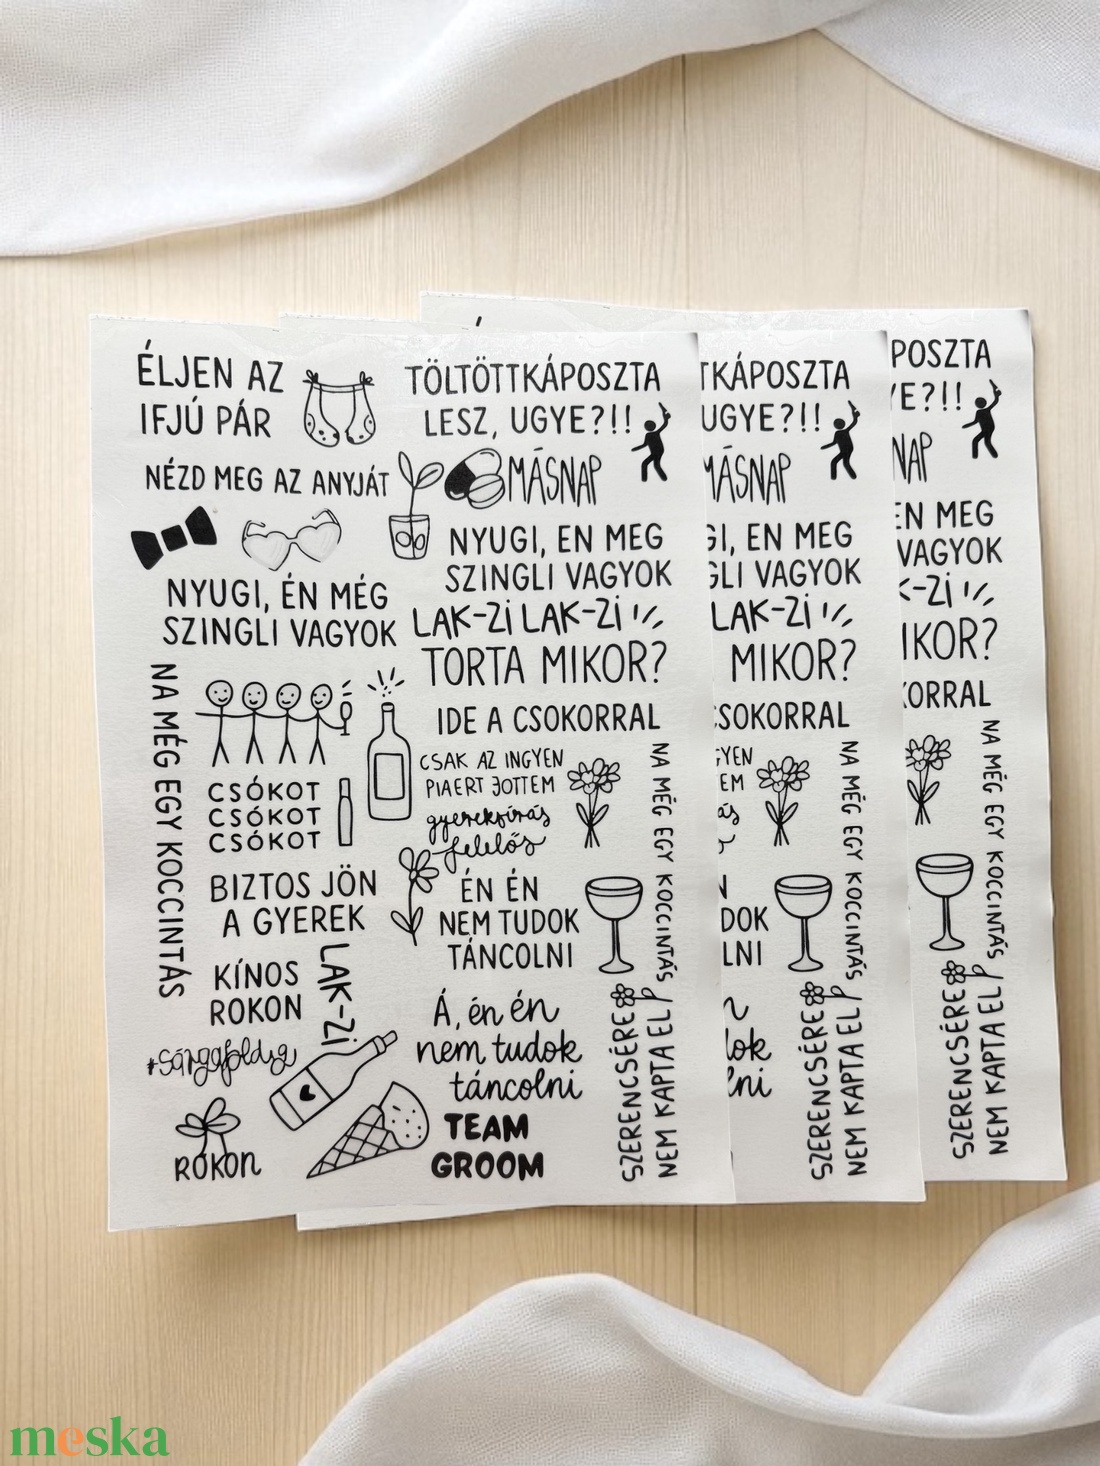 ÉLJEN AZ
IFJÚ PÁR
NÉZD MEG AZ ANYJÁT
NYUGI, ÉN MÉG
SZINGLI VAGYOK
NA MÉG EGY KOCCINTÁS
CSÓKOT
CSÓKOT
CSÓKOT
BIZTOS JÖN
A GYEREK
KÍNOS
ROKON
LAK-Zi
#sárgaföldig
ROKON
TÖLTÖTTKÁPOSZTA
LESZ, UGYE?!!
MÁSNAP
NYUGI, EN MEG
SZINGLI VAGYOK
LAK-Zi LAK-Zi
TORTA MIKOR?
IDE A CSOKORRAL
CSAK AZ INGYEN
PIAERT JOTTEM
gyereksírás
felelős
ÉN ÉN
NEM TUDOK
TÁNCOLNI
NA MÉG EGY KOCCINTÁS
Á, én én
nem tudok
táncolni
TEAM
GROOM
SZERENCSÉRE
NEM KAPTA EL
TKÁPOSZTA
UGYE?!!
MÁSNAP
GI, EN MEG
GLI VAGYOK
LAK-Zi
MIKOR?
CSOKORRAL
GYEN
EM
ás
N
DOK
LNI
NA MÉG EGY KOCCINTÁS
n
dok
lni
SZERENCSÉRE
NEM KAPTA EL
POSZTA
YE?!!
NAP
EN MEG
VAGYOK
K-Zi
IKOR?
KORRAL
NA MÉG EGY KOCCINTÁS
SZERENCSÉRE
NEM KAPTA EL
meska